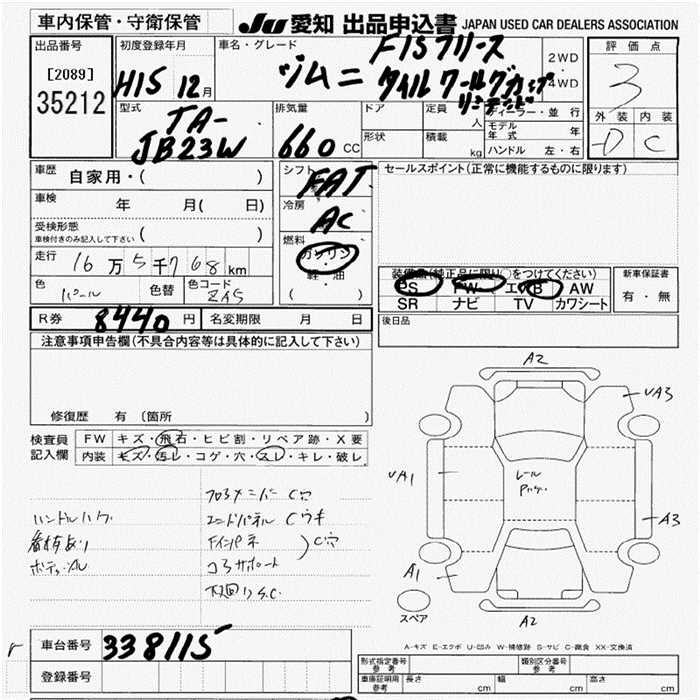 車内保管・守衛保管
JU 愛知 出品申込書 JAPAN USED CAR DEALERS ASSOCIATION
出品番号
[2089]
35212
初度登録年月
H15 12月
車名・グレード
ジムニ F1Sフリース
2WD
・
4WD
評価点
3
外装 内装
D C
型式
TA-
JB23W
排気量
660 CC
ドア
形状
定員 人
積載 kg
ディーラー・並行
モデル年式 年
ハンドル 左・右
車歴 自家用・( )
車検 年 月( 日)
受検形態
車検付きのみ記入して下さい ( )
走行 16万5千768km
色 パール 色替 色コード
シフト FAT
冷房 AC
燃料
ガソリン
・
軽・油
( )
セールスポイント(正常に機能するものに限ります)
装備品(純正品に限り○をつけてください)
PS PW エアB AW
SR ナビ TV カワシート
新車保証書
有・無
R券 8440円 名変期限 月 日
後日品
注意事項申告欄(不具合内容等は具体的に記入して下さい)
修復歴 有(箇所 )
検査員記入欄
FW キズ・飛石・ヒビ割・リペア跡・X要
内装 キズ・汚レ・コゲ・穴・スレ・キレ・破レ
ハンドルハゲ
フロアメンバーC穴
エンドパネルCウキ
C穴
コアサポート
下回りS.C
A2
UA3
UA1
A3
A1
A2
スペア
A-キズ E-エクボ U-凹み W-補修跡 S-サビ C-腐食 XX-交換済
車台番号 338115
登録番号
形式指定番号 参考
類別区分番号 参考
車庫証明用 参考 長さ cm 幅 cm 高さ cm